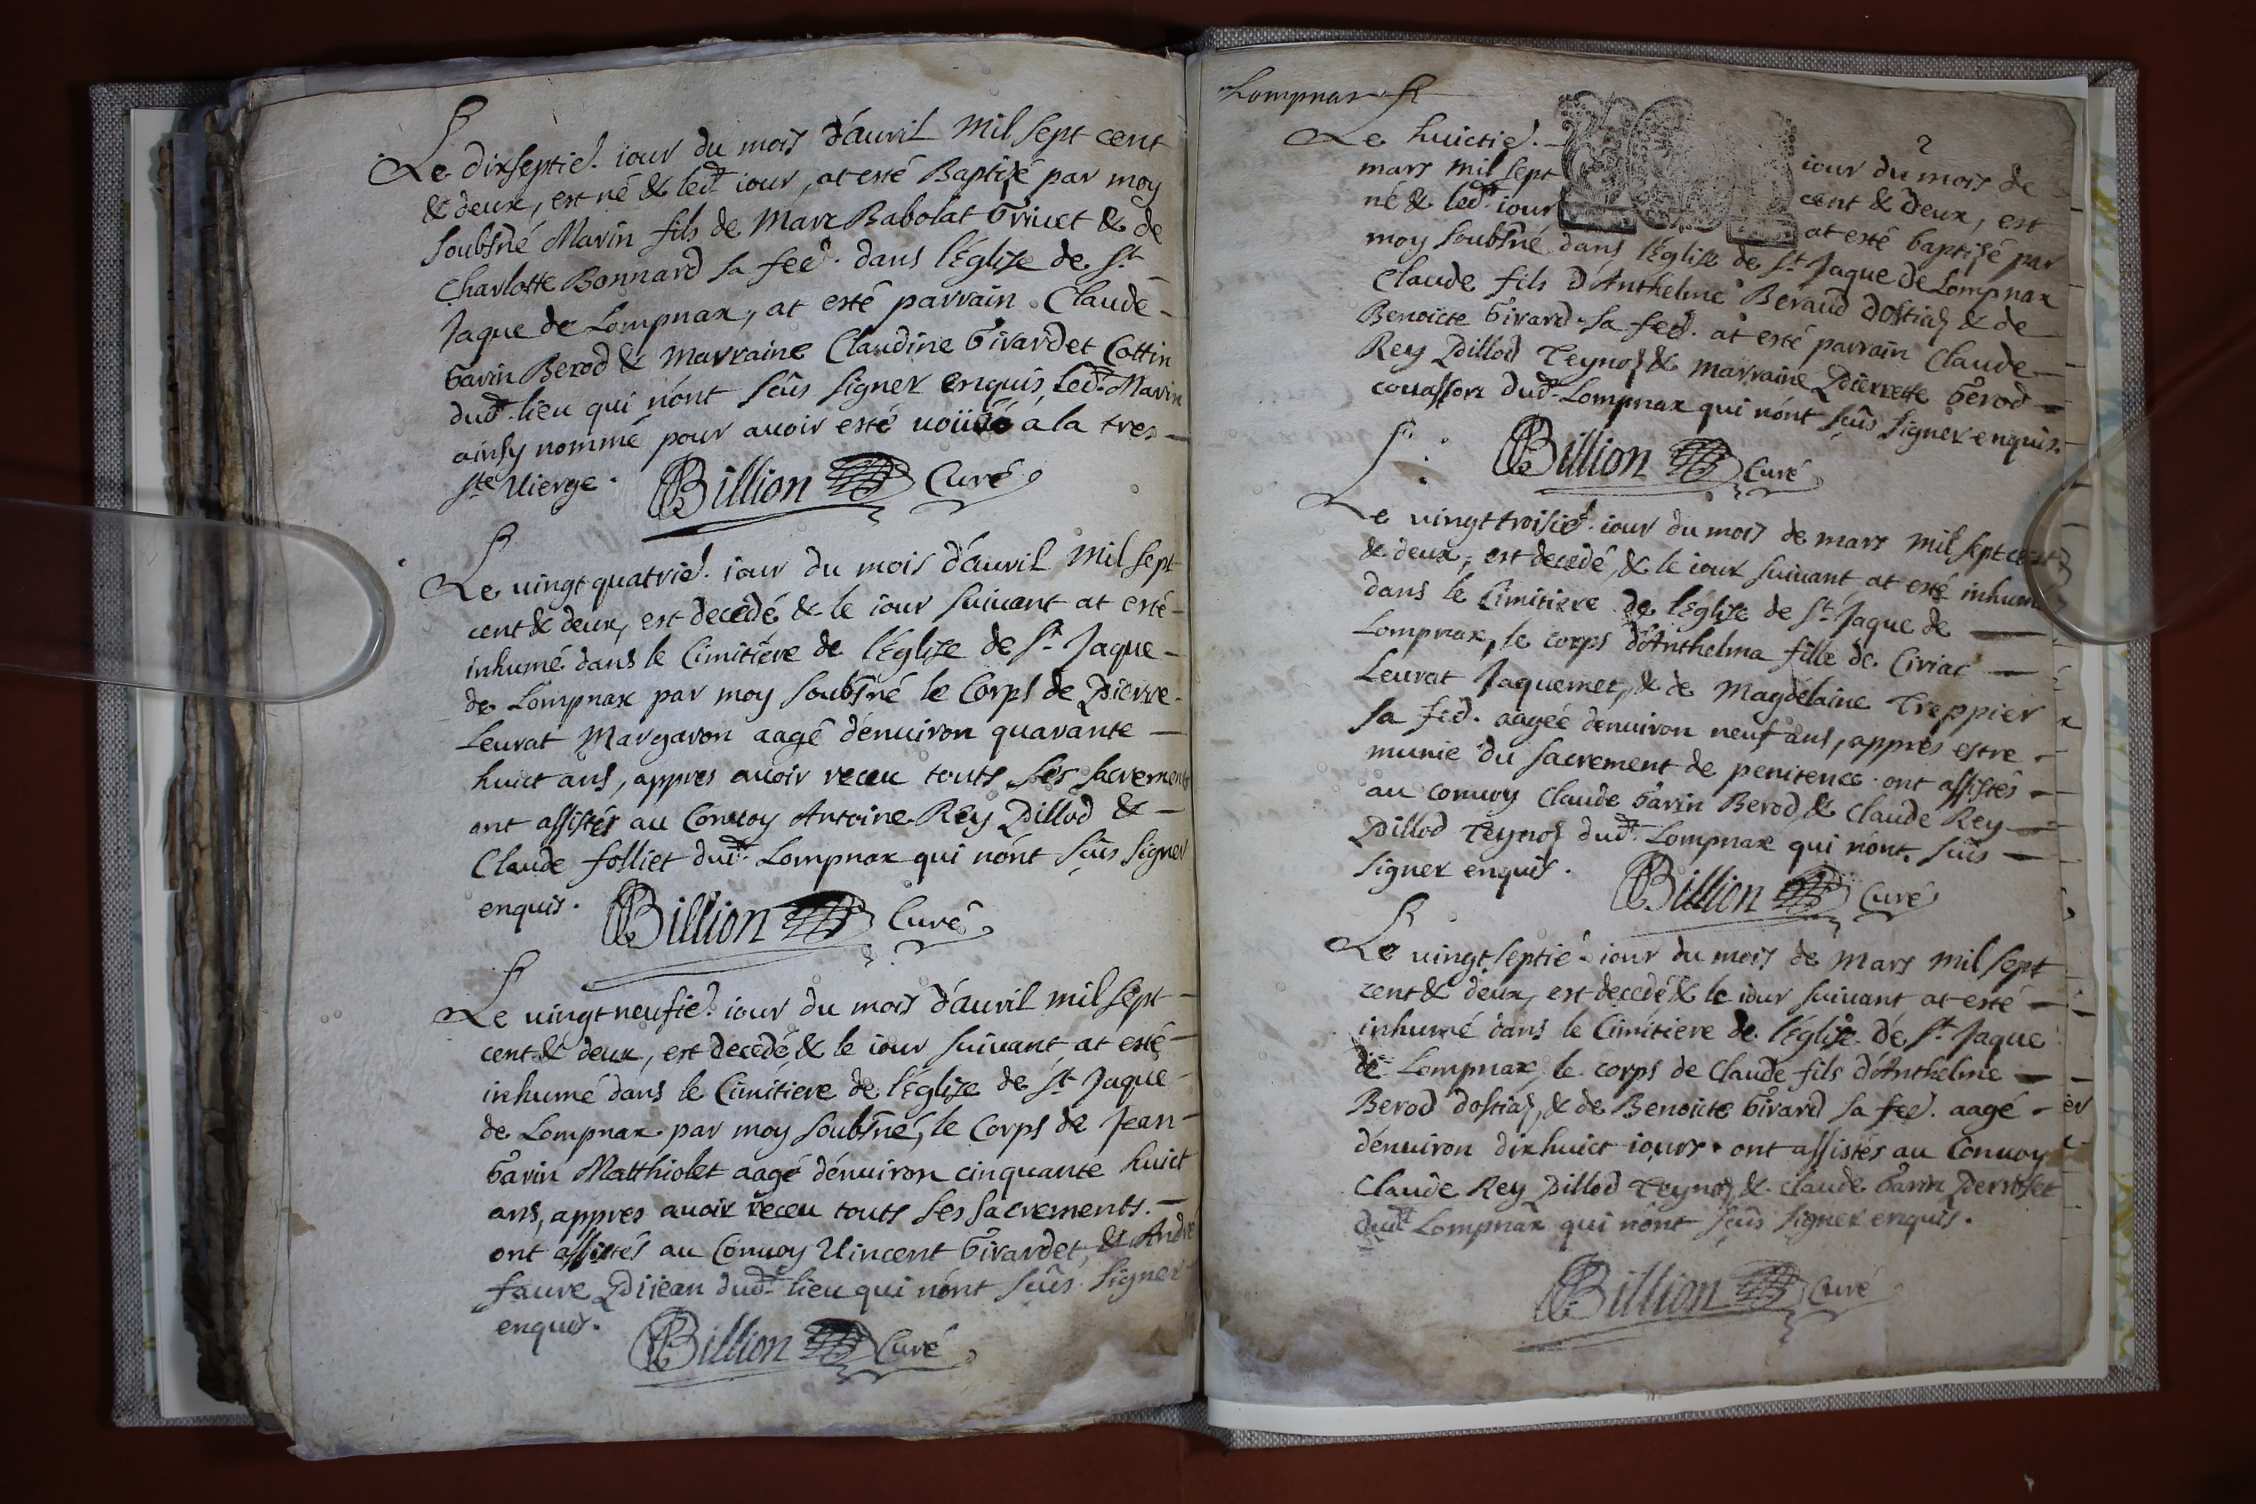 Le dixseptie. iour du mois d'auril mil sept cent
& deux, est né & led. iour, at esté Baptizé par moy
soubsné Marin fils de Marc Babolat Griuet & de
Charlotte Bonnard sa fee. dans l'Églize de St.
Jaque de Lompnax, at esté parrain Claude
Garin Berod & marraine Claudine Girardet Cottin
dud. lieu qui n'ont sçûs signer enquis, led. Marin
ainsy nommé pour auoir esté uoüé à la tres
ste. Uierge. Billion Curé
Le uingt quatrie. iour du mois d'auril mil sept
cent & deux, est decedé & le iour suiuant at esté
inhumé dans le Cimitiere de l'Églize de St. Jaque
de Lompnax par moy soubsné le Corps de Pierre
Leurat Margaron aagé d'enuiron quarante
huict ans, appres auoir receu touts ses sacrements
ont assistés au Conuoy Antoine Rey Pillod &
Claude folliet dud. Lompnax qui n'ont sçûs signer
enquis. Billion Curé
Le uingt neufie. iour du mois d'auril mil sept
cent & deux, est decedé & le iour suiuant at esté
inhumé dans le Cimitiere de l'Églize de St. Jaque
de Lompnax par moy soubsné, le Corps de Jean
Garin Matthiolet aagé d'enuiron cinquante huict
ans, appres auoir receu touts ses sacrements.
ont assistés au Conuoy Uincent Girardet, & André
faure Pijean dud. lieu qui n'ont sçûs signer
enquis. Billion Curé
Lompnax
2
Le huictie. iour du mois de
mars mil sept cent & deux, est
né & led. iour at esté baptizé par
moy soubsné dans l'Églize de St. Jaque de Lompnax
Claude fils d'Anthelme Beraud d'ostiaz & de
Benoicte Girard sa fee. at esté parrain Claude
Rey Pillod Teynoz & marraine Pierrette Gerod
couasson dud. Lompnax qui n'ont sçûs signer enquis.
Billion Curé
Le uingt troisie. iour du mois de mars mil sept cent
& deux, est decedé, & le iour suiuant at esté inhumé
dans le Cimitiere de l'Églize de St. Jaque de
Lompnax, le corps d'Anthelma fille de Ciriac
Leurat Jaquemet, & de Magdelaine Treppier
sa fee. aagée d'enuiron neuf ans, appres estre
munie du sacrement de penitence. ont assistés
au conuoy Claude Garin Berod, & Claude Rey
Pillod Teynoz dud. Lompnax qui n'ont sçûs
signer enquis. Billion Curé
Le uingt septie. iour du mois de mars mil sept
cent & deux, est decedé & le iour suiuant at esté
inhumé dans le Cimitiere de l'Églize de St. Jaque
de Lompnax, le corps de Claude fils d'Anthelme
Berod d'ostiaz, & de Benoicte Girard sa fee. aagé
d'enuiron dixhuict iours. ont assistés au Conuoy
Claude Rey Pillod Teynoz & Claude Garin Perroset
dud. Lompnax qui n'ont sçûs signer enquis.
Billion Curé